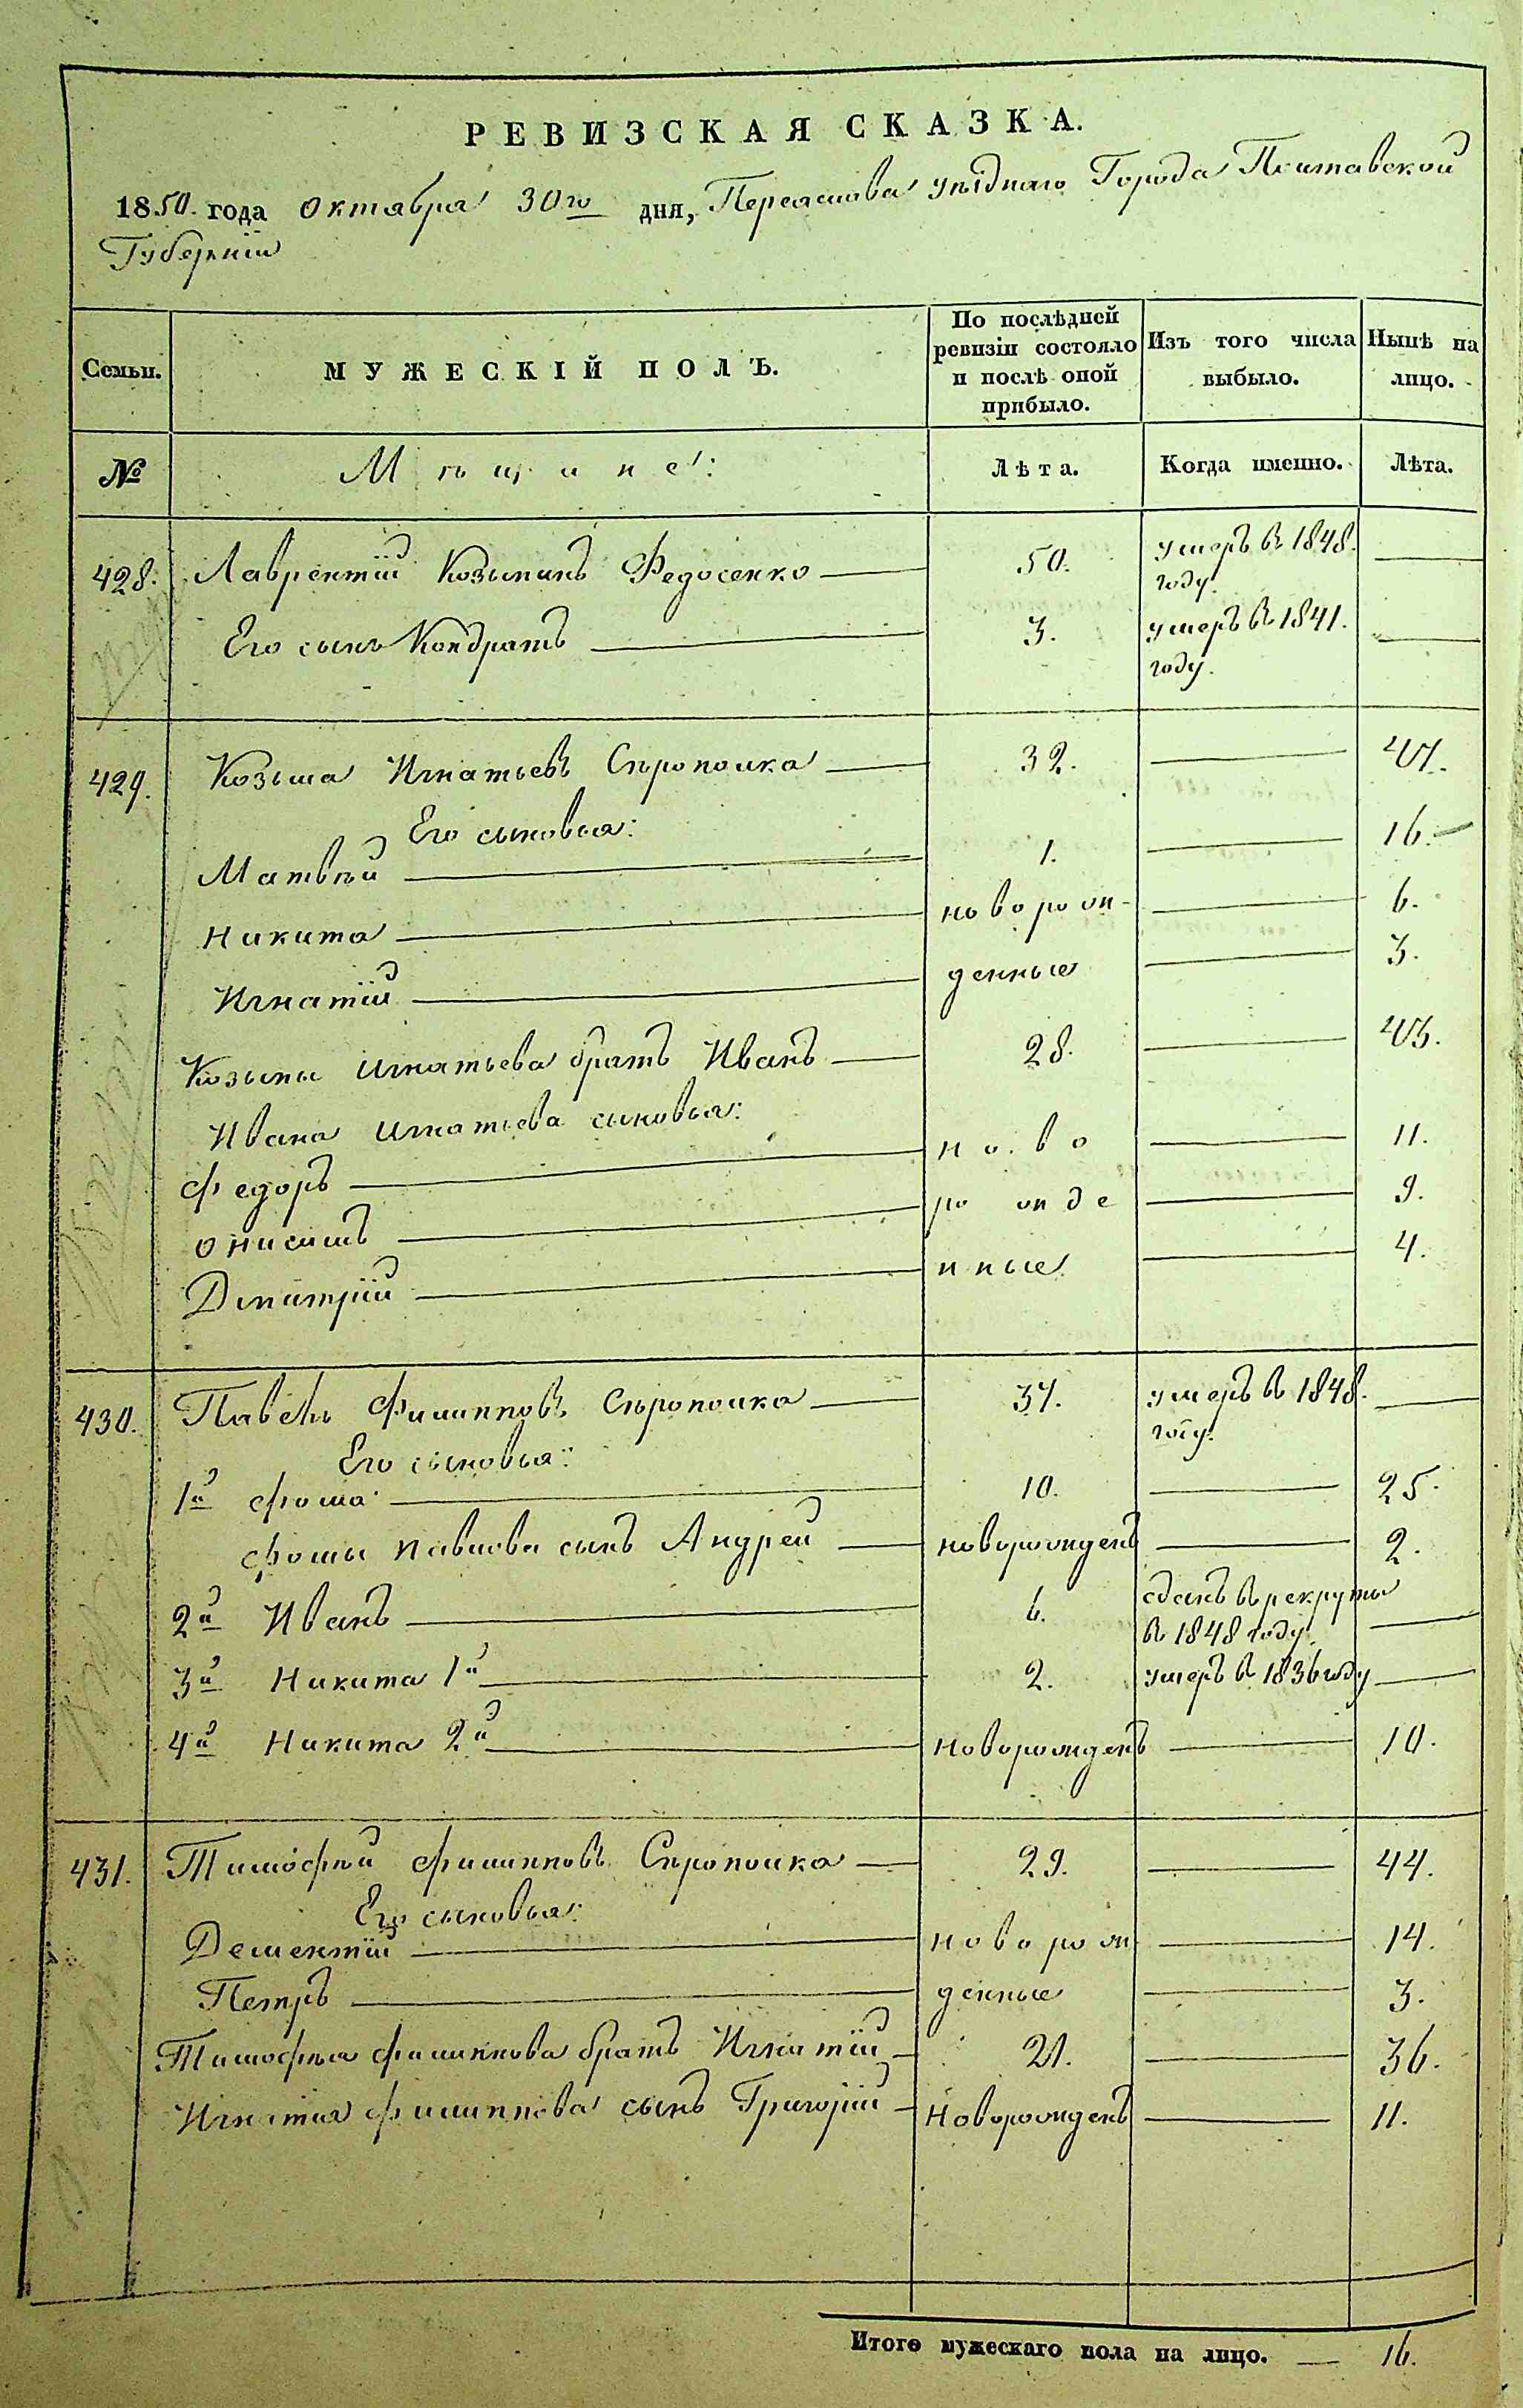 РЕВИЗСКАЯ СКАЗКА.
1850. года Октября 30го дня, Переяслова уѣзднаго Города Полтавской
Губерніи
Семьи. МУЖЕСКІЙ ПОЛЪ. По послѣдней ревизіи состояло и послѣ оной прибыло. Изъ того числа выбыло. Нынѣ на лицо.
№ Мѣщане: Лѣта. Когда именно. Лѣта.
428. Лаврентій Козьминъ Федосенко — 50. умеръ в 1848. году. —
Его сынъ Кондратъ — 3. умеръ в 1841. году. —
429. Козьма Игнатьевъ Сыропоика — 32. — 47.
Его сыновья:
Матвѣй — 1. — 16.
Никита — новорож- — 6.
Игнатій — денные — 3.
Козьмы Игнатьева братъ Иванъ — 28. — 43.
Ивана Игнатьева сыновья:
Федоръ — но.во — 11.
Онисимъ — рожде — 9.
Дмитрій — нные — 4.
430. Павелъ Филипповъ Сыропоика — 37. умеръ в 1848. году. —
Его сыновья:
1й Фома — 10. — 25.
Фомы Павлова сынъ Андрей — новорожденъ — 2.
2й Иванъ — 6. сданъ в рекруты в 1848 году. —
3й Никита 1й — 2. умеръ в 1836 году —
4й Никита 2й — новорожденъ — 10.
431. Тимофѣй Филипповъ Сыропоика — 29. — 44.
Его сыновья:
Дементій — новорож — 14.
Петръ — денные — 3.
Тимофѣя Филиппова братъ Игнатій — 21. — 36.
Игнатія Филиппова сынъ Григорій — Новорожденъ — 11.
Итого мужескаго пола на лицо. — 16.